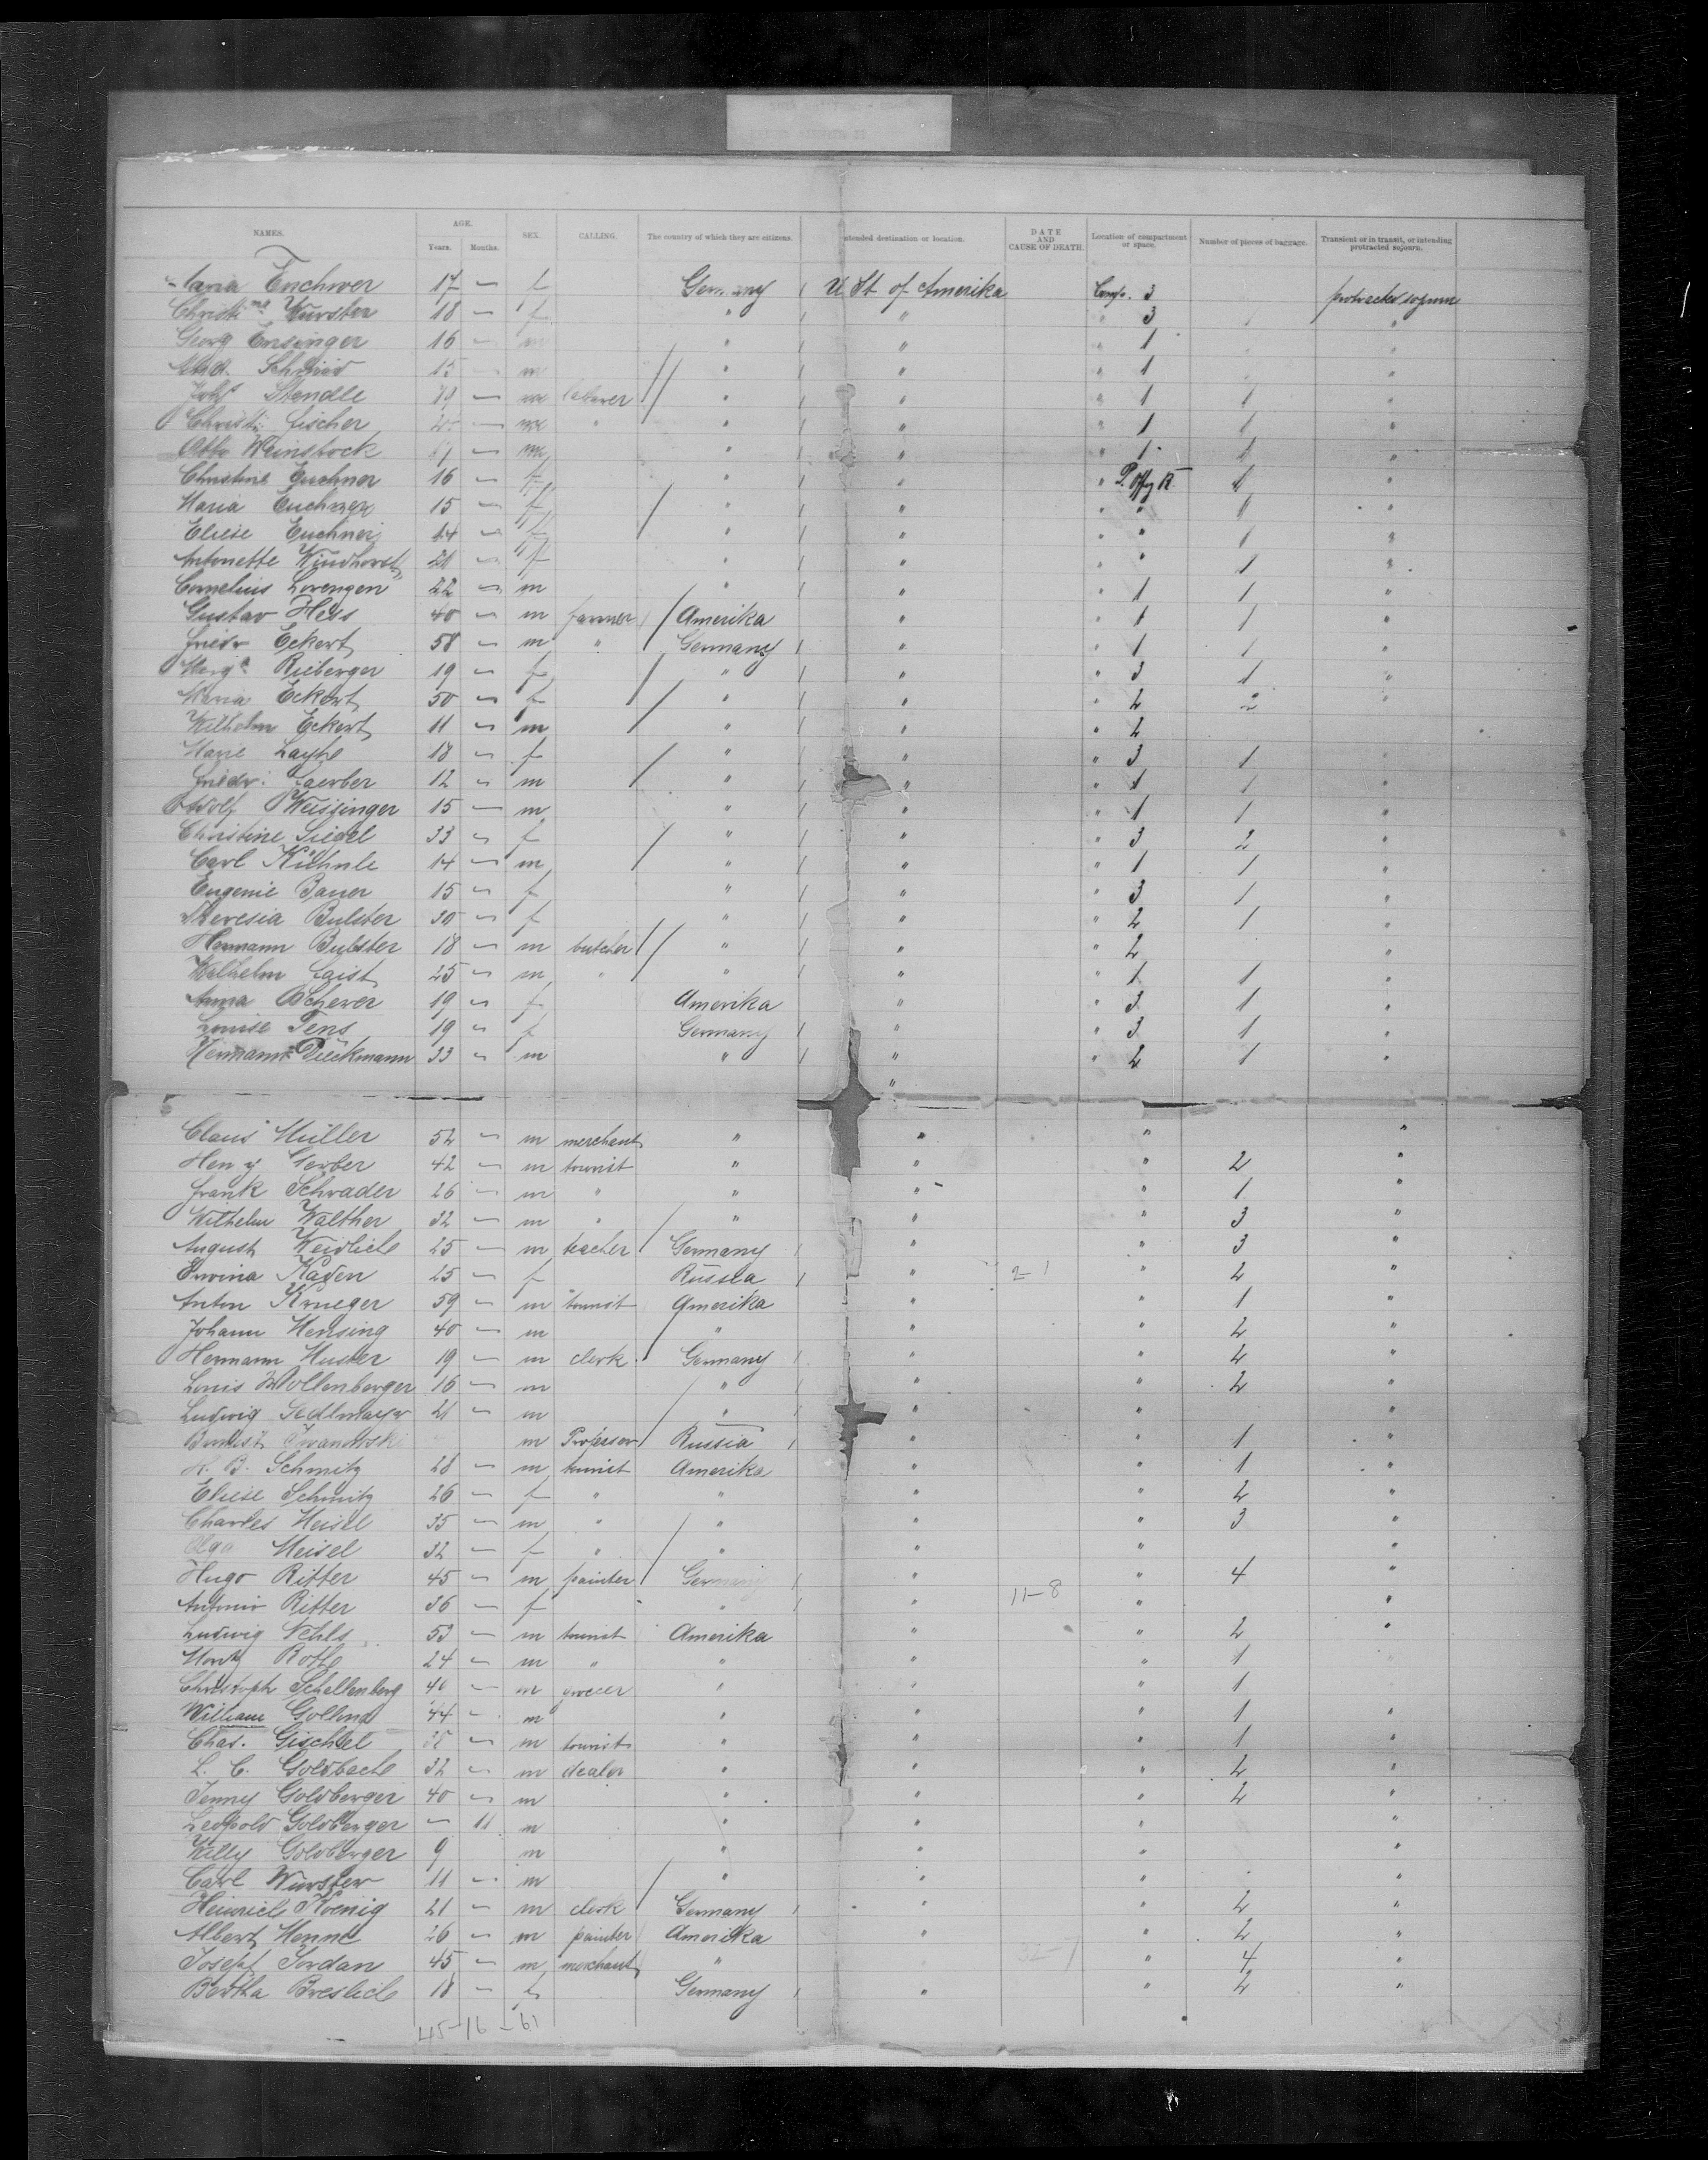 NAMES. AGE. Years. Months. SEX. CALLING. The country of which they are citizens. Intended destination or location. DATE AND CAUSE OF DEATH. Location of compartment or space. Number of pieces of baggage. Transient or in transit, or intending protracted sojourn.
Maria Euchner 17 — f Germany U St of Amerika Comp. 3 protracted sojourn
Christina Wurster 18 — f " " " 3 "
Georg Ensinger 16 — m " " " 1 "
Schmid 15 — m " " " 1 "
Joh's Stendle 19 — m labourer " " " 1 1 "
Christ. Fischer — m " " " " 1 1 "
Otto Weinstock — m " " " 1 1 "
Christine Euchner 16 — f " " " 1 "
Maria Euchner 15 — f " " " " 1 "
Eliese Euchner 14 — f " " " " 1 "
Antonette Windhorst 21 — f " " " " 1 "
Cornelius Lorenzen 22 — m " " " 1 1 "
Gustav Hess 40 — m farmer Amerika " " 1 1 "
Friedr Eckert 58 — m " Germany " " 1 1 "
Marga Rieberger 19 — f " " " 3 1 "
Maria Eckert 50 — f " " " 2 2 "
Wilhelm Eckert 11 — m " " " 2
Marie Layhe 18 — f " " " 3 1 "
Friedr. Gaerber 12 — m " " " 1 1 "
Adolf Weissinger 15 — m " " " 1 1 "
Christine Siegel 33 — f " " " 3 2 "
Carl Kühnle 14 — m " " " 1 1 "
Eugenie Bauer 15 — f " " " 3 1 "
Theresia Bulster 50 — f " " " 2 1 "
Hermann Bulster 18 — m butcher " " " 2 "
Wilhelm Gaist 25 — m " " " " 1 1 "
Anna Scherer 19 — f Amerika " " 3 1 "
Louise Tens 19 — f Germany " " 3 1 "
Hermann Dieckmann 33 — m " " " 2 1 "
"
Claus Müller 52 — m merchant " " " "
Henry Gerber 42 — m tourist " " " 2 "
Frank Schrader 26 — m " " " " 1 "
Wilhelm Walther 32 — m " " " " 3 "
August Weidlich 25 — m teacher Germany " " 3 "
Erwina Kaden 25 — f Russia " 2 1 " 2 "
Anton Krueger 59 — m tourist Amerika " " 1 "
Johann Hensing 40 — m " " " 2 "
Hermann Huster 19 — m clerk Germany " " 2 "
Louis Wollenberger 16 — m " " " 2 "
Ludwig Sedlmayer 21 — m " " " "
Iwanowski m Professor Russia " " 1 "
H. B. Schmitz 28 — m tourist Amerika " " 1 "
Eliese Schmitz 26 — f " " " " 2 "
Charles Meisel 35 — m " " " " 3 "
Olga Meisel 32 — f " " " " "
Hugo Ritter 45 — m painter Germany " " 4 "
Antonie Ritter 36 — f " " 11-8 " "
Ludwig Nehls 53 — m tourist Amerika " " 2 "
Moritz Roth 24 — m " " " " 1
Christoph Schallenberg 40 — m grocer " " " 1
William Golling 44 — m " " " 1 "
Chas. Gischlel 38 — m tourist " " " 1 "
L. C. Goldbach 32 — m dealer " " " 2 "
Jenny Goldberger 40 — m " " " 2 "
Leopold Goldberger — 11 m " " " "
Willy Goldberger 9 m " " " "
Carl Wurster 11 — m " " " "
Heinrich Koenig 21 — m clerk Germany " " 2 "
Albert Henne 26 — m painter Amerika " " 2 "
Josef Jordan 45 — m merchant " " 4 "
Bertha Breslich 18 — f Germany " " 2 "
45-16-61